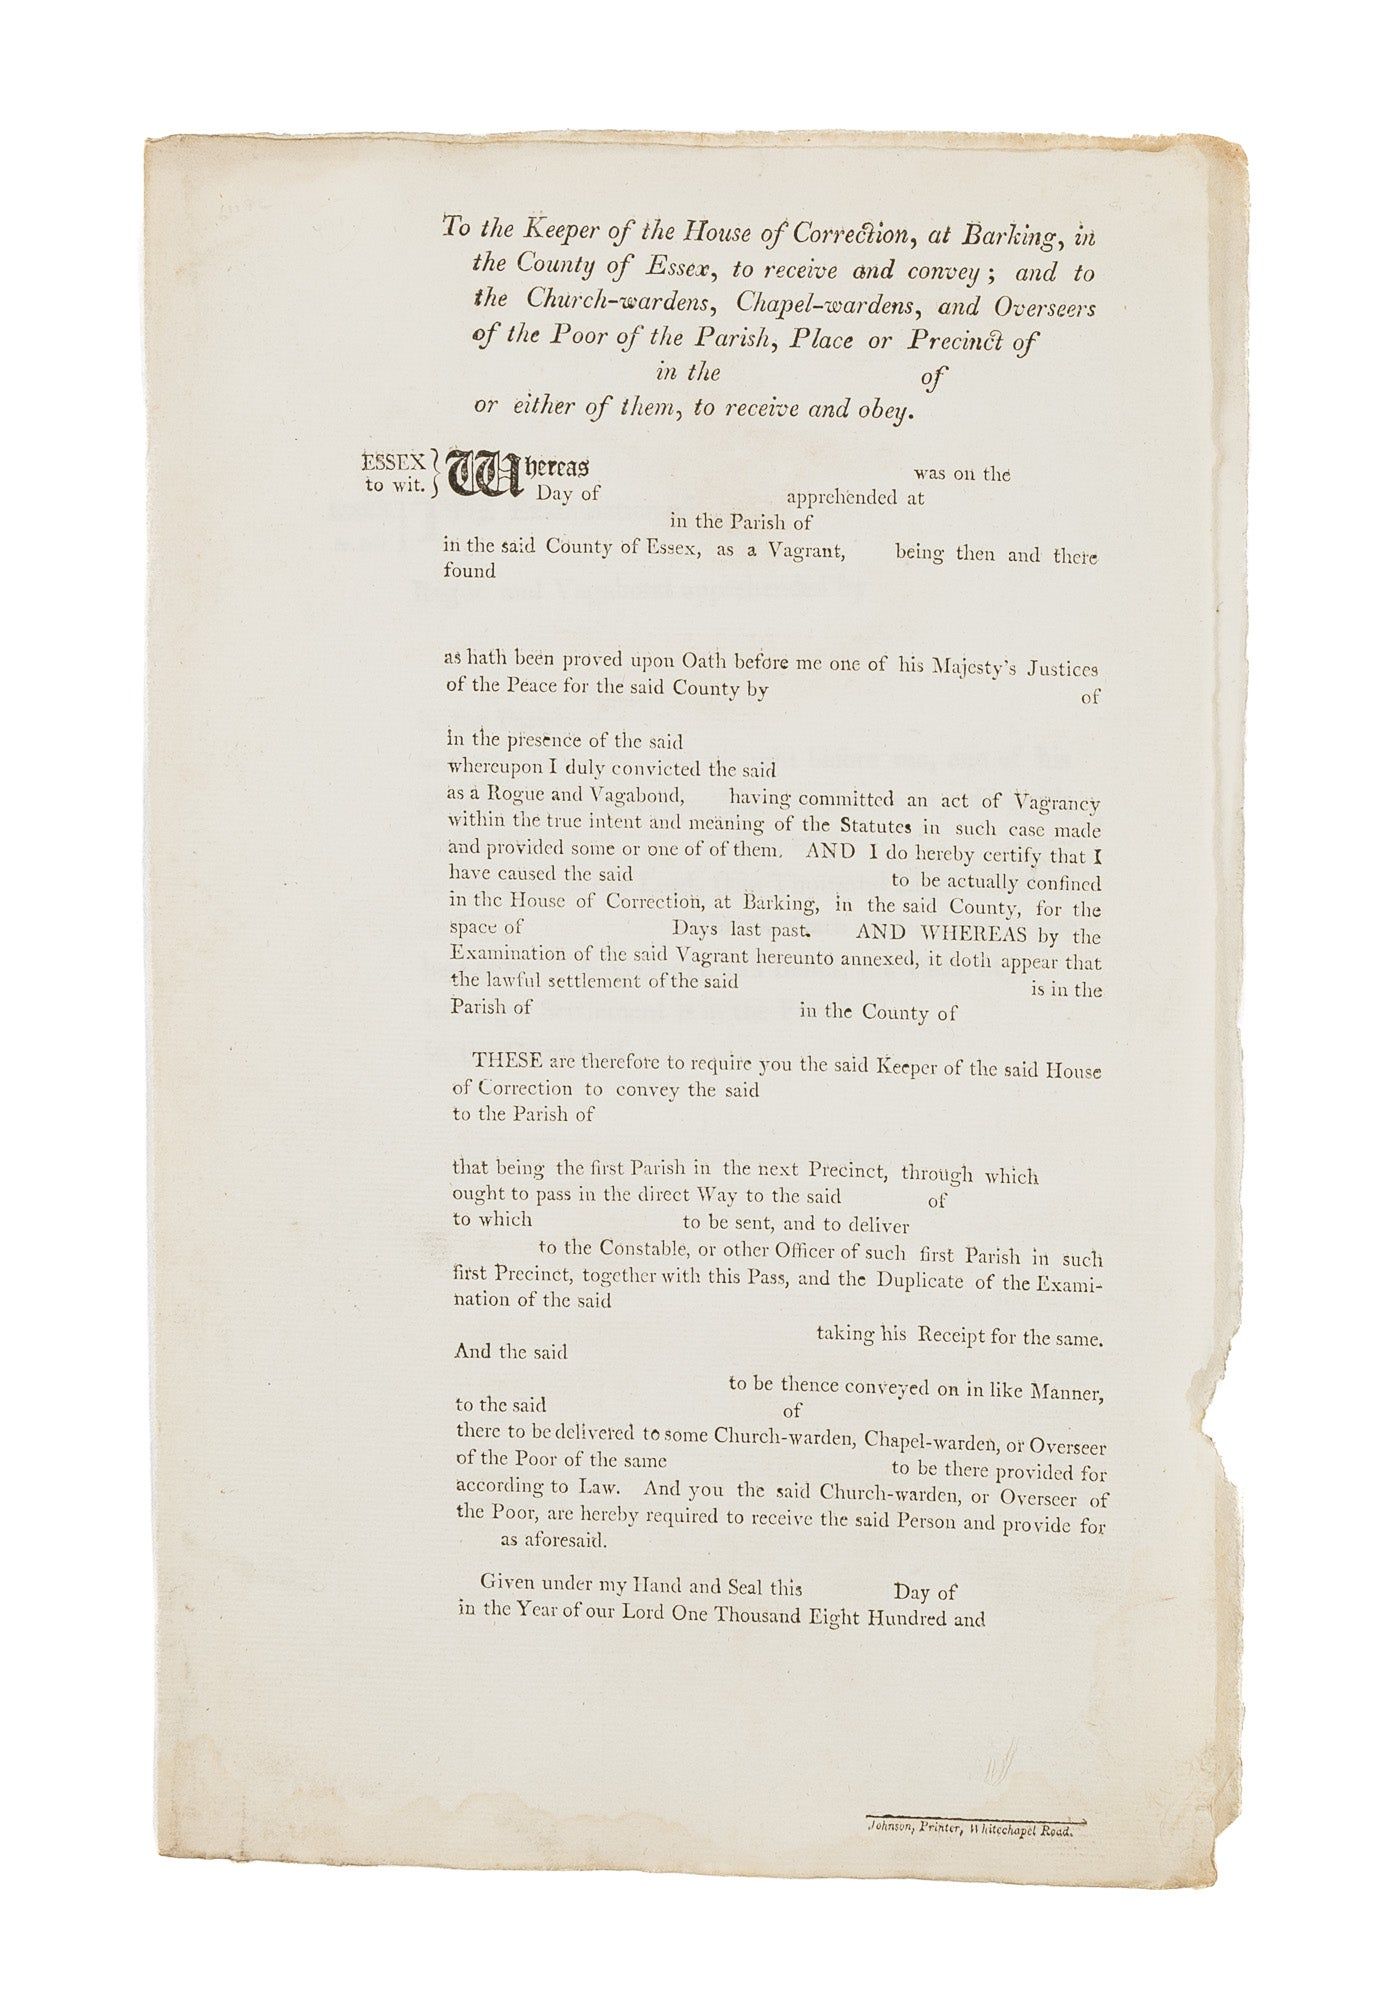 To the Keeper of the House of Correction, at Barking, in
the County of Essex, to receive and convey; and to
the Church-wardens, Chapel-wardens, and Overseers
of the Poor of the Parish, Place or Precinct of
in the of
or either of them, to receive and obey.
ESSEX
to wit.
Whereas was on the
Day of apprehended at
in the Parish of
in the said County of Essex, as a Vagrant, being then and there
found
as hath been proved upon Oath before me one of his Majesty's Justices
of the Peace for the said County by of
in the presence of the said
whereupon I duly convicted the said
as a Rogue and Vagabond, having committed an act of Vagrancy
within the true intent and meaning of the Statutes in such case made
and provided some or one of of them. AND I do hereby certify that I
have caused the said to be actually confined
in the House of Correction, at Barking, in the said County, for the
space of Days last past. AND WHEREAS by the
Examination of the said Vagrant hereunto annexed, it doth appear that
the lawful settlement of the said is in the
Parish of in the County of
THESE are therefore to require you the said Keeper of the said House
of Correction to convey the said
to the Parish of
that being the first Parish in the next Precinct, through which
ought to pass in the direct Way to the said of
to which to be sent, and to deliver
to the Constable, or other Officer of such first Parish in such
first Precinct, together with this Pass, and the Duplicate of the Exami-
nation of the said
taking his Receipt for the same.
And the said
to be thence conveyed on in like Manner,
to the said of
there to be delivered to some Church-warden, Chapel-warden, or Overseer
of the Poor of the same to be there provided for
according to Law. And you the said Church-warden, or Overseer of
the Poor, are hereby required to receive the said Person and provide for
as aforesaid.
Given under my Hand and Seal this Day of
in the Year of our Lord One Thousand Eight Hundred and
Johnson, Printer, Whitechapel Road.